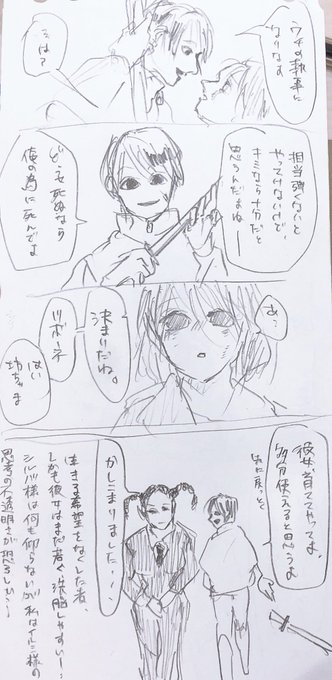 ウチの執事に
なりなよ
…は?
相当強くないと
やってけないけど、
キミなら十分だと
思うんだよねー
どうせ死ぬなら
俺の為に死んでよ
あ?
決まりだね。
ツボーネ
はい
坊ちゃま
彼女、育ててやってよ
多分使えると思うよ
かしこまりました…
生きる希望をなくした者、
しかも彼女はまだ若く洗脳しやすい…
シルバ様は何も仰らないが私はイルミ様の
思考の不透明さが恐ろしい…